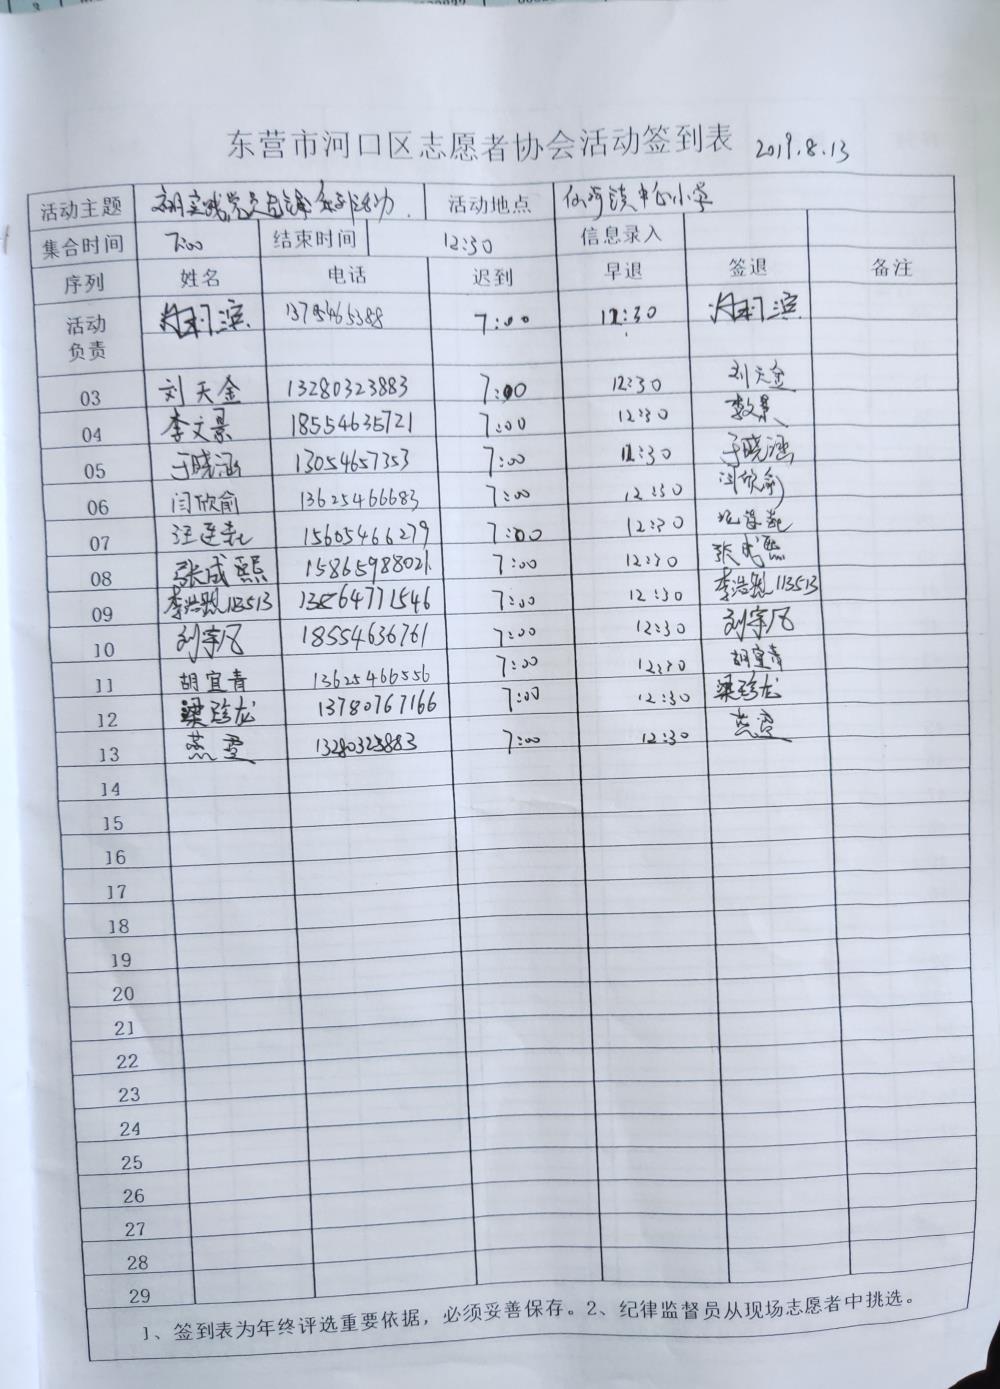 东营市河口区志愿者协会活动签到表 2019.8.13
活动主题 活动 活动地点 小学
集合时间 7:00 结束时间 12:30 信息录入
序列 姓名 电话 迟到 早退 签退 备注
活动负责 7:00 12:30
03 刘天金 13280323883 7:00 12:30 刘天金
04 李文景 18554635721 7:00 12:30 李文景
05 于晓涵 13054657353 7:00 12:30 于晓涵
06 闫欣俞 13625466683 7:00 12:30 闫欣俞
07 15605466279 7:00 12:30
08 张成熙 15865988021 7:00 12:30 张成熙
09 李浩 113513 13564771546 7:00 12:30 李浩 113513
10 刘宇凡 18554636761 7:00 12:30 刘宇凡
11 胡宜青 13625466556 7:00 12:30 胡宜青
12 梁珍龙 13780767166 7:00 12:30 梁珍龙
13 燕雯 13280323883 7:00 12:30 燕雯
14
15
16
17
18
19
20
21
22
23
24
25
26
27
28
29
1、签到表为年终评选重要依据，必须妥善保存。2、纪律监督员从现场志愿者中挑选。